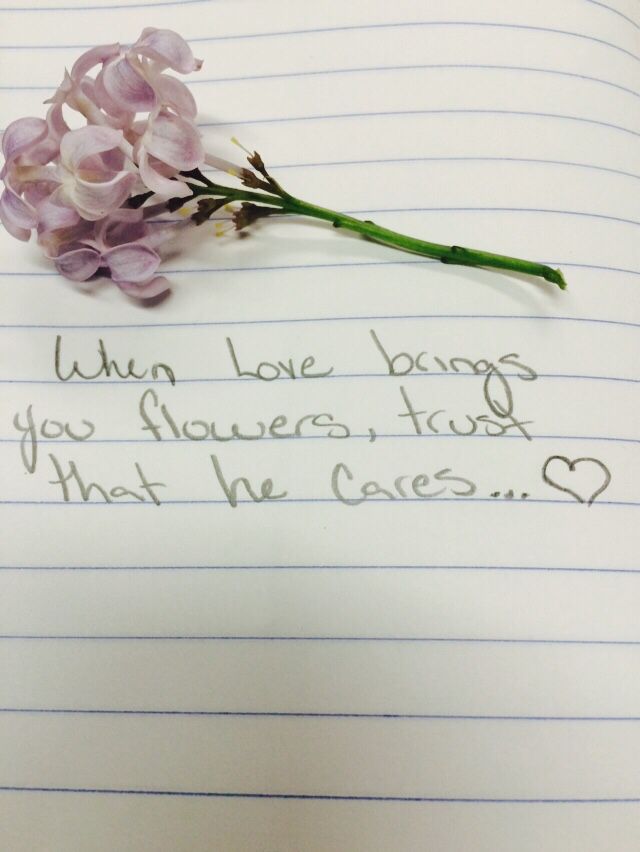 When Love brings
you flowers, trust
that he cares...♡